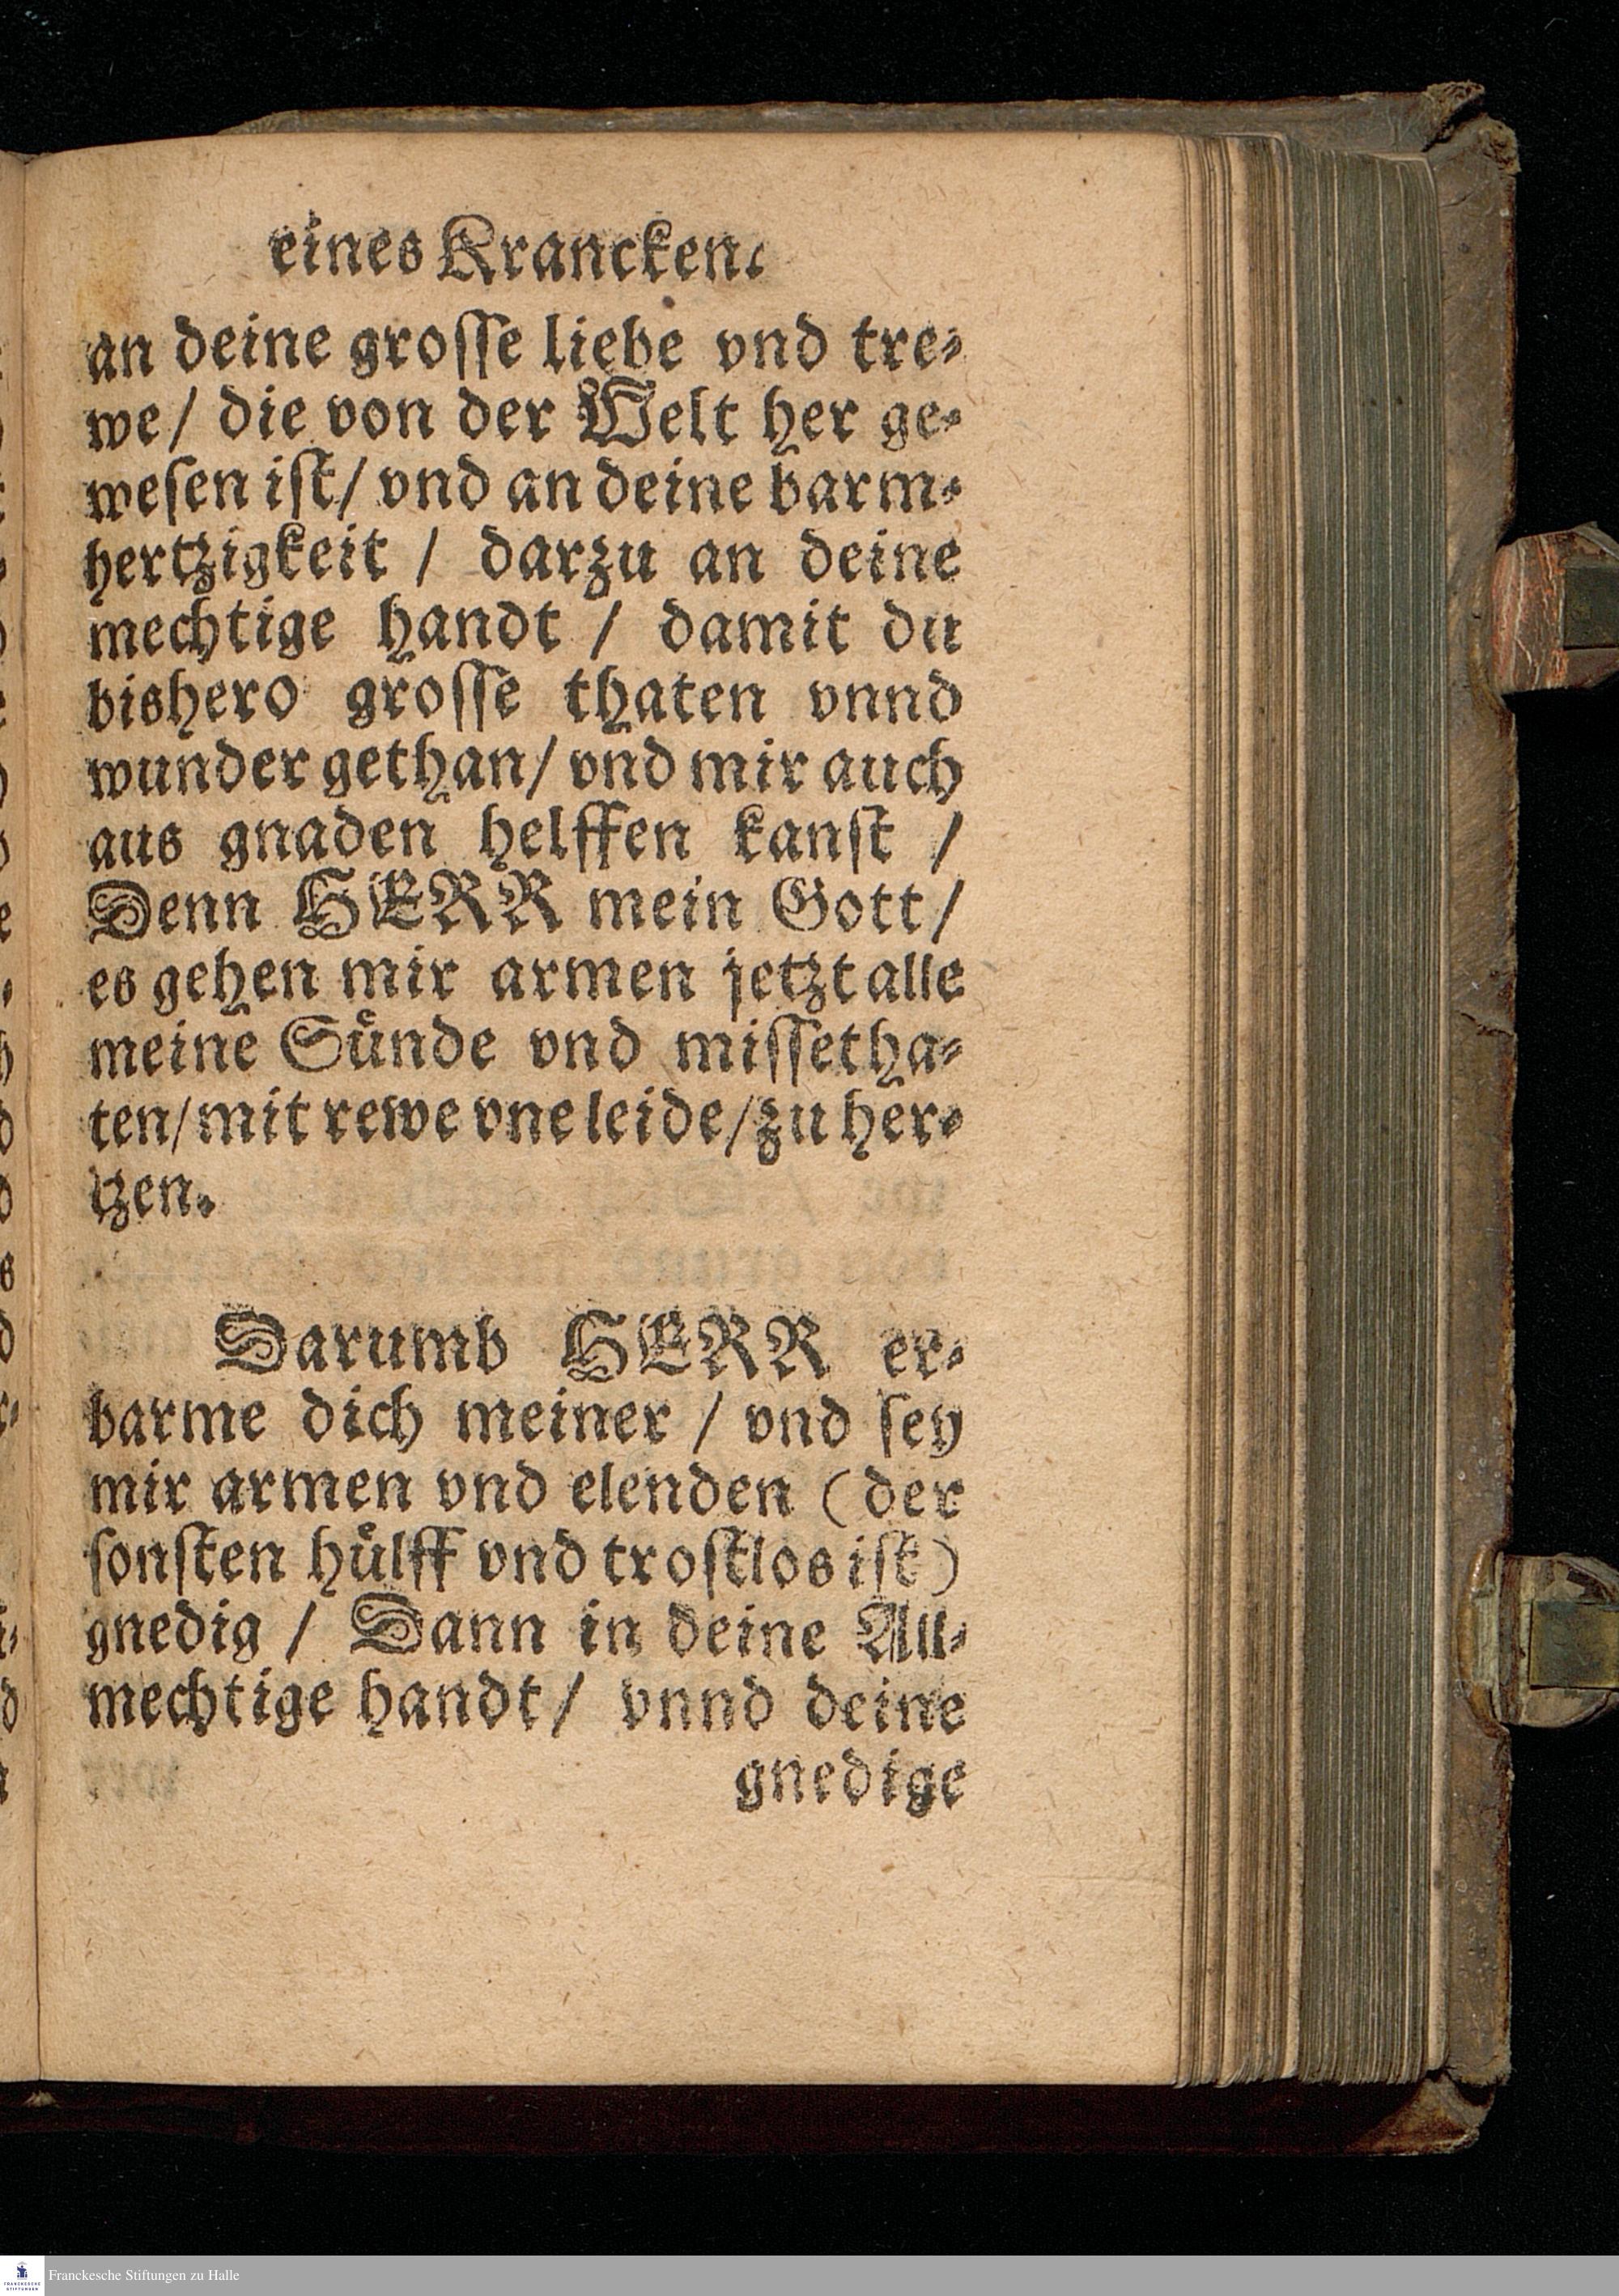 eines Krancken.
an deine groſſe liebe vnd tre⸗
we / die von der Welt her ge⸗
weſen iſt / vnd an deine barm⸗
hertzigkeit / darzu an deine
mechtige handt / damit du
bishero groſſe thaten vnnd
wunder gethan / vnd mir auch
aus gnaden helffen kanſt /
Denn HERR mein Gott /
es gehen mir armen jetzt alle
meine Suͤnde vnd miſſetha⸗
ten / mit rewe vne leide / zu her⸗
tzen.
Darumb HERR er⸗
barme dich meiner / vnd ſey
mir armen vnd elenden ( der
ſonſten huͤlff vnd troſtlos iſt )
gnedig / Dann in deine All⸗
mechtige handt / vnnd deine
gnedige
Franckesche Stiftungen zu Halle
FRANCKESCHE
STIFTUNGEN